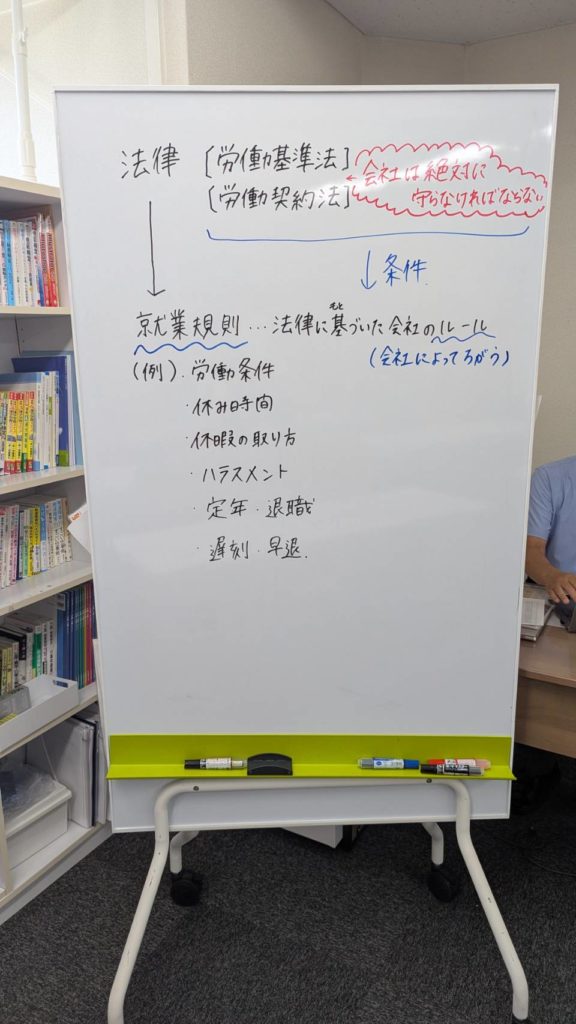 法律 [労働基準法] ← 会社は絶対に
[労働契約法] 守らなければならない
↓ ↓ 条件
就業規則…法律に基づいた会社のルール
もと
(例)・労働条件 (会社によってちがう)
・休み時間
・休暇の取り方
・ハラスメント
・定年・退職
・遅刻・早退.